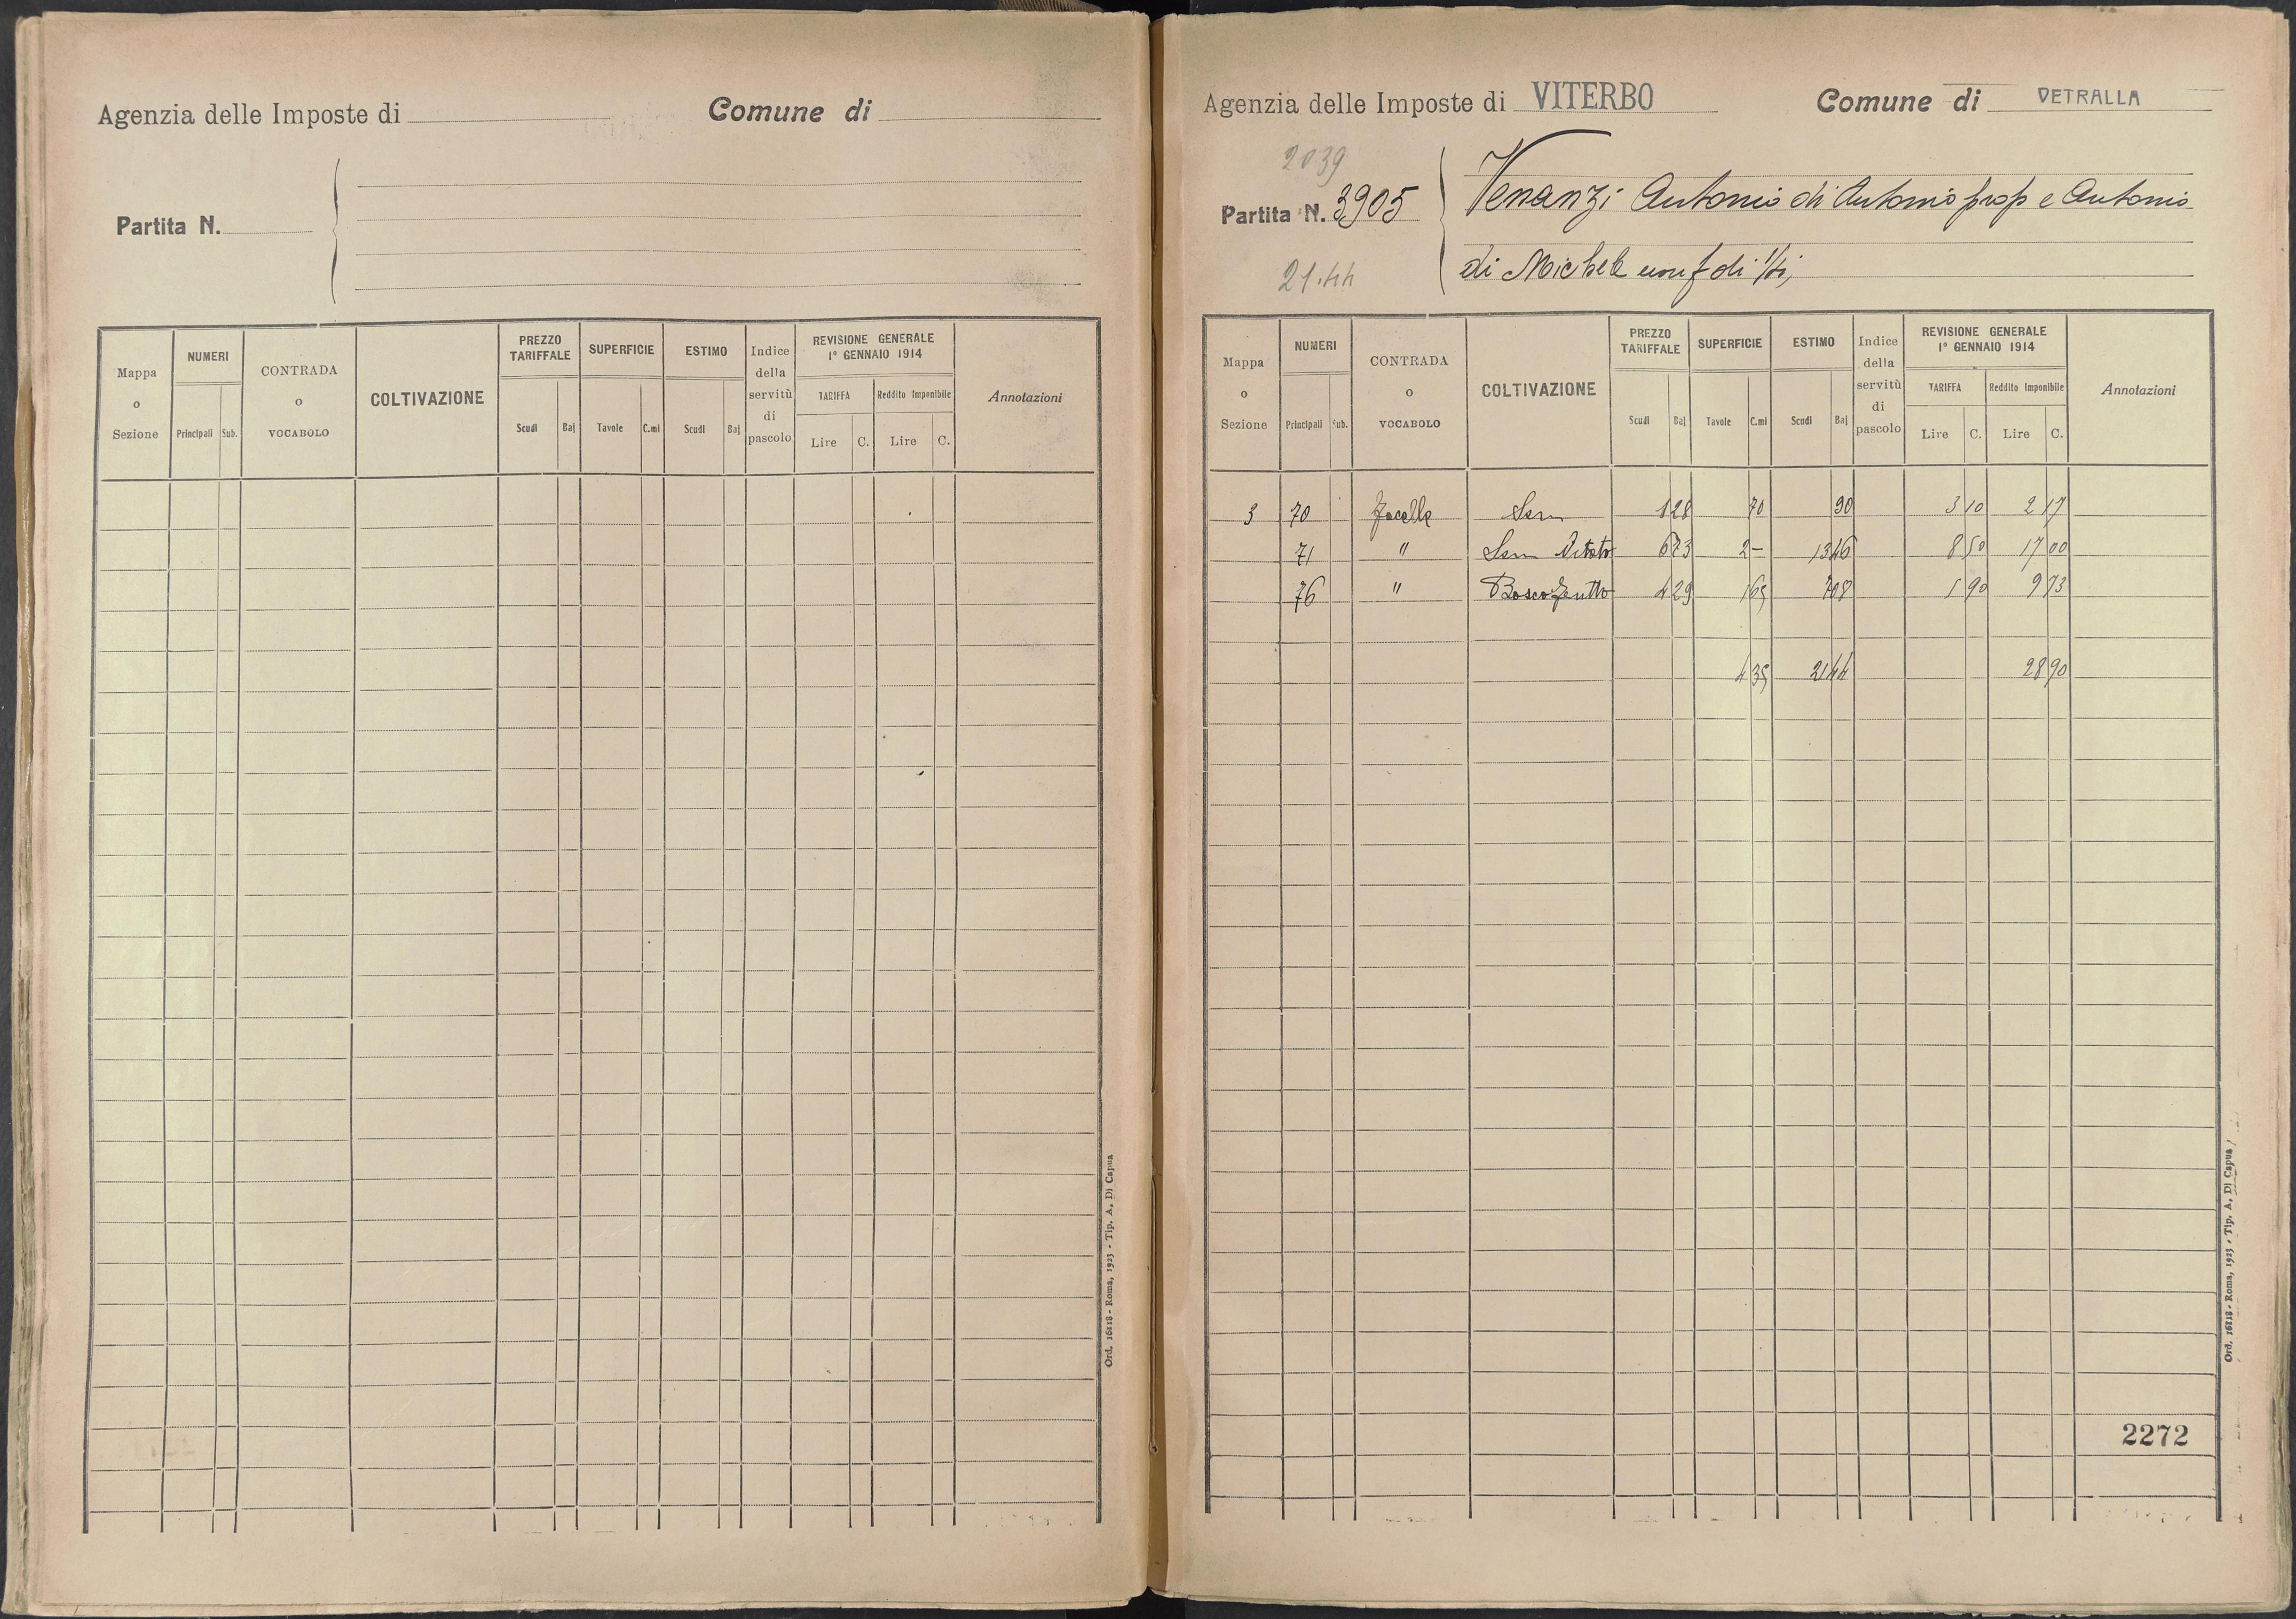 Agenzia delle Imposte di
Comune di
Partita N.
Mappa o Sezione
NUMERI
Principali Sub.
CONTRADA o VOCABOLO
COLTIVAZIONE
PREZZO TARIFFALE
Scudi Baj
SUPERFICIE
Tavole C.mi
ESTIMO
Scudi Baj
Indice della servitù di pascolo
REVISIONE GENERALE
1º GENNAIO 1914
TARIFFA Reddito Imponibile
Lire C. Lire C.
Annotazioni
Ord. 16118 - Roma, 1923 - Tip. A. Di Capua
Agenzia delle Imposte di VITERBO
Comune di VETRALLA
2039
Partita N. 3905
21.44
Venanzi Antonio di Antonio prop e Antonio
di Michele usuf di
Mappa o Sezione
NUMERI
Principali Sub.
CONTRADA o VOCABOLO
COLTIVAZIONE
PREZZO TARIFFALE
Scudi Baj
SUPERFICIE
Tavole C.mi
ESTIMO
Scudi Baj
Indice della servitù di pascolo
REVISIONE GENERALE
1º GENNAIO 1914
TARIFFA Reddito Imponibile
Lire C. Lire C.
Annotazioni
3 70 Sem 1 28 70 90 3 10 2 17
71 " Sem Vitato 6 73 2 - 13 46 8 50 17 00
76 " Bosco 4 29 1 65 7 08 5 90 9 73
4 35 21 44 28 90
2272
Ord. 16118 - Roma, 1923 - Tip. A. Di Capua